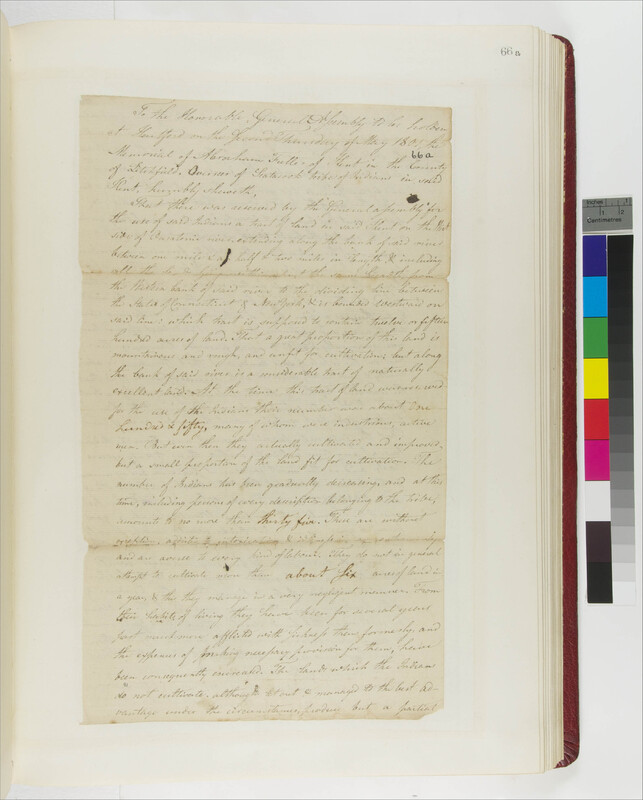 66a
To the Honorable General Assembly to be holden
at Hartford on the Second Thursday of May 1801, the
66a
Memorial of Abraham Fuller of Kent in the County
of Litchfield, Overseer of Scatacook tribe of Indians in said
Kent, humbly sheweth,
That there was reserved by the General assembly for
the use of said Indians a tract of land in said Kent on the West
side of Ousatonic river, extending along the bank of said river
between one mile & a half & two miles in length & including
all the land from
the Western bank of said river to the dividing line between
the State of Connecticut & New York, & is bounded westward on
said line; which tract is supposed to contain twelve or fifteen
hundred acres of land. That a great proportion of this land is
mountainous and rough, and unfit for cultivation; but along
the bank of said river is a considerable tract of naturally
excellent land. At the time this tract of land was reserved
for the use of the Indians their number was about one
hundred & fifty, many of whom were industrious, active
men. But even then they actually cultivated and improved,
but a small proportion of the land fit for cultivation. The
number of Indians has been gradually decreasing, and at this
time, including persons of every description belonging to the tribe,
amounts to no more than thirty five. These are without
exception, addicted to
and are averse to every kind of labour. They do not in general
attempt to cultivate more than about Six acres of land in
a year, & this they manage in a very negligent manner. From
their habits of living they have been for several years
past much more afflicted with sickness than formerly, and
the expences of making necessary provision for them, have
been consequently increased. The lands which the Indians
do not cultivate, although let out & managed to the best ad-
vantage under the circumstances, produce but a partial